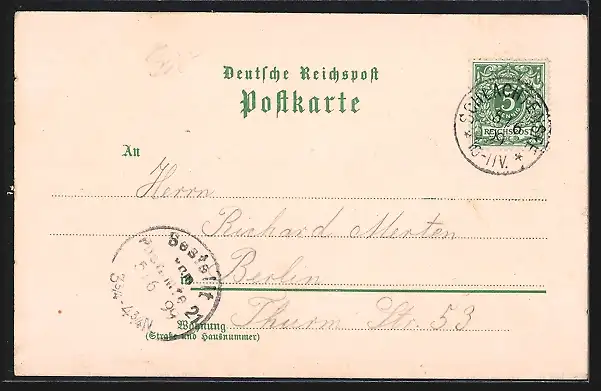 Deutsche Reichspost
Postkarte
5
REICHSPOST
SCHLACHTENSEE
10-11V.
An
Herrn
Richard Merten
Berlin
Thurm Str. 53
Wohnung
(Straße und Hausnummer)
Bestellt
vom
Postamte 21
5/6 97
3¼-4¾N